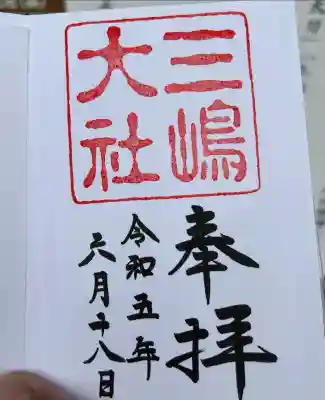 三嶋
大社
奉拝
令和五年
六月十八日